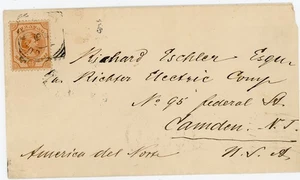 Richard Eschler Esqu.
Richter Electric Comp
No 95 federal St.
Camden. N. J.
America del Norte
U. S. A.